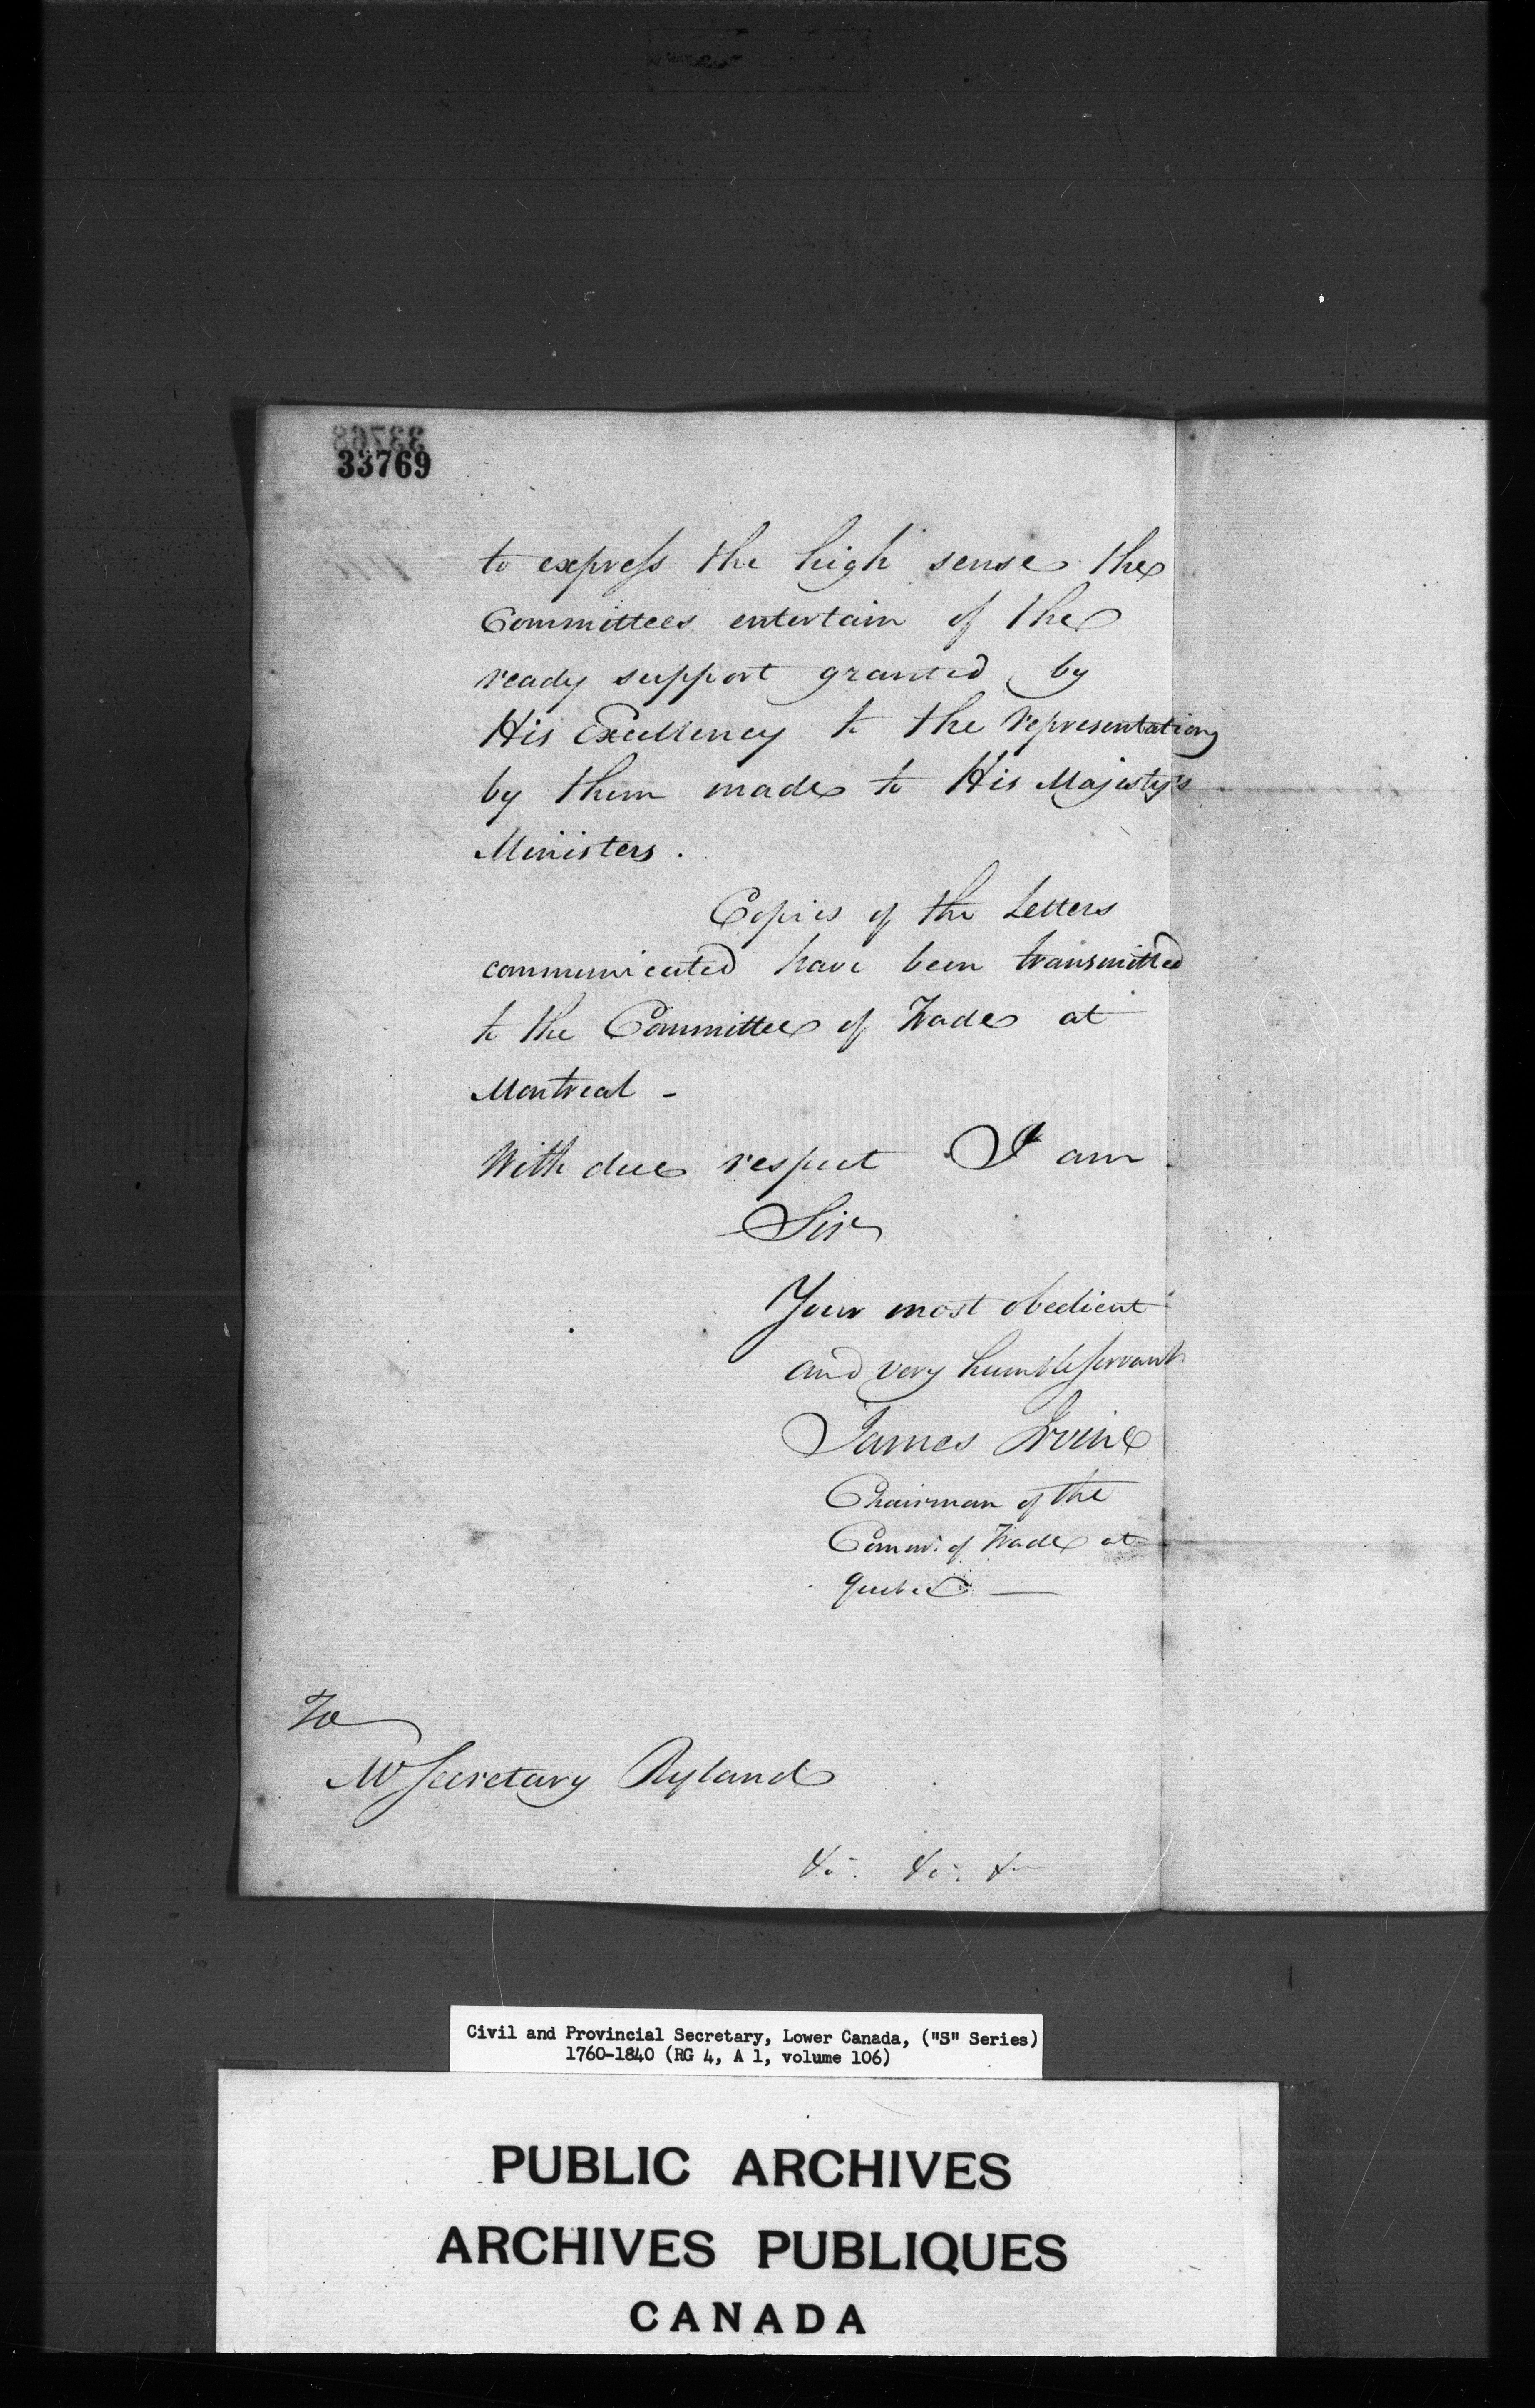 33768
33769
to express the high sense the
Committees entertain of the
ready support granted by
His Excellency to the representations
by them made to His Majesty's
Ministers.
Copies of the Letters
communicated have been transmitted
to the Committee of Trade at
Montreal -
With due respect I am
Sir
Your most obedient
and very humble servant
James Irvine
Chairman of the
Comm: of Trade at
Quebec —
To
Mr Secretary Ryland
&c. &c. &c
Civil and Provincial Secretary, Lower Canada, ("S" Series)
1760-1840 (RG 4, A 1, volume 106)
PUBLIC ARCHIVES
ARCHIVES PUBLIQUES
CANADA